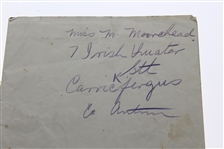 Miss M. Moorehead
7 Irish Quarter
Sth
Carricfergus
Co Antrim